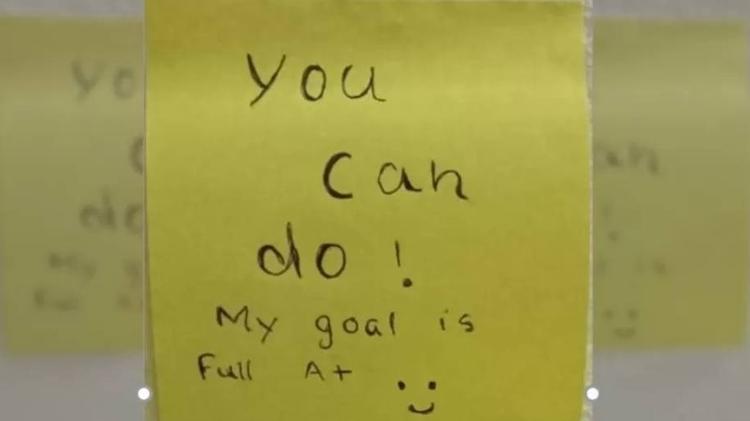 You
Can
do!
My goal is
Full A+